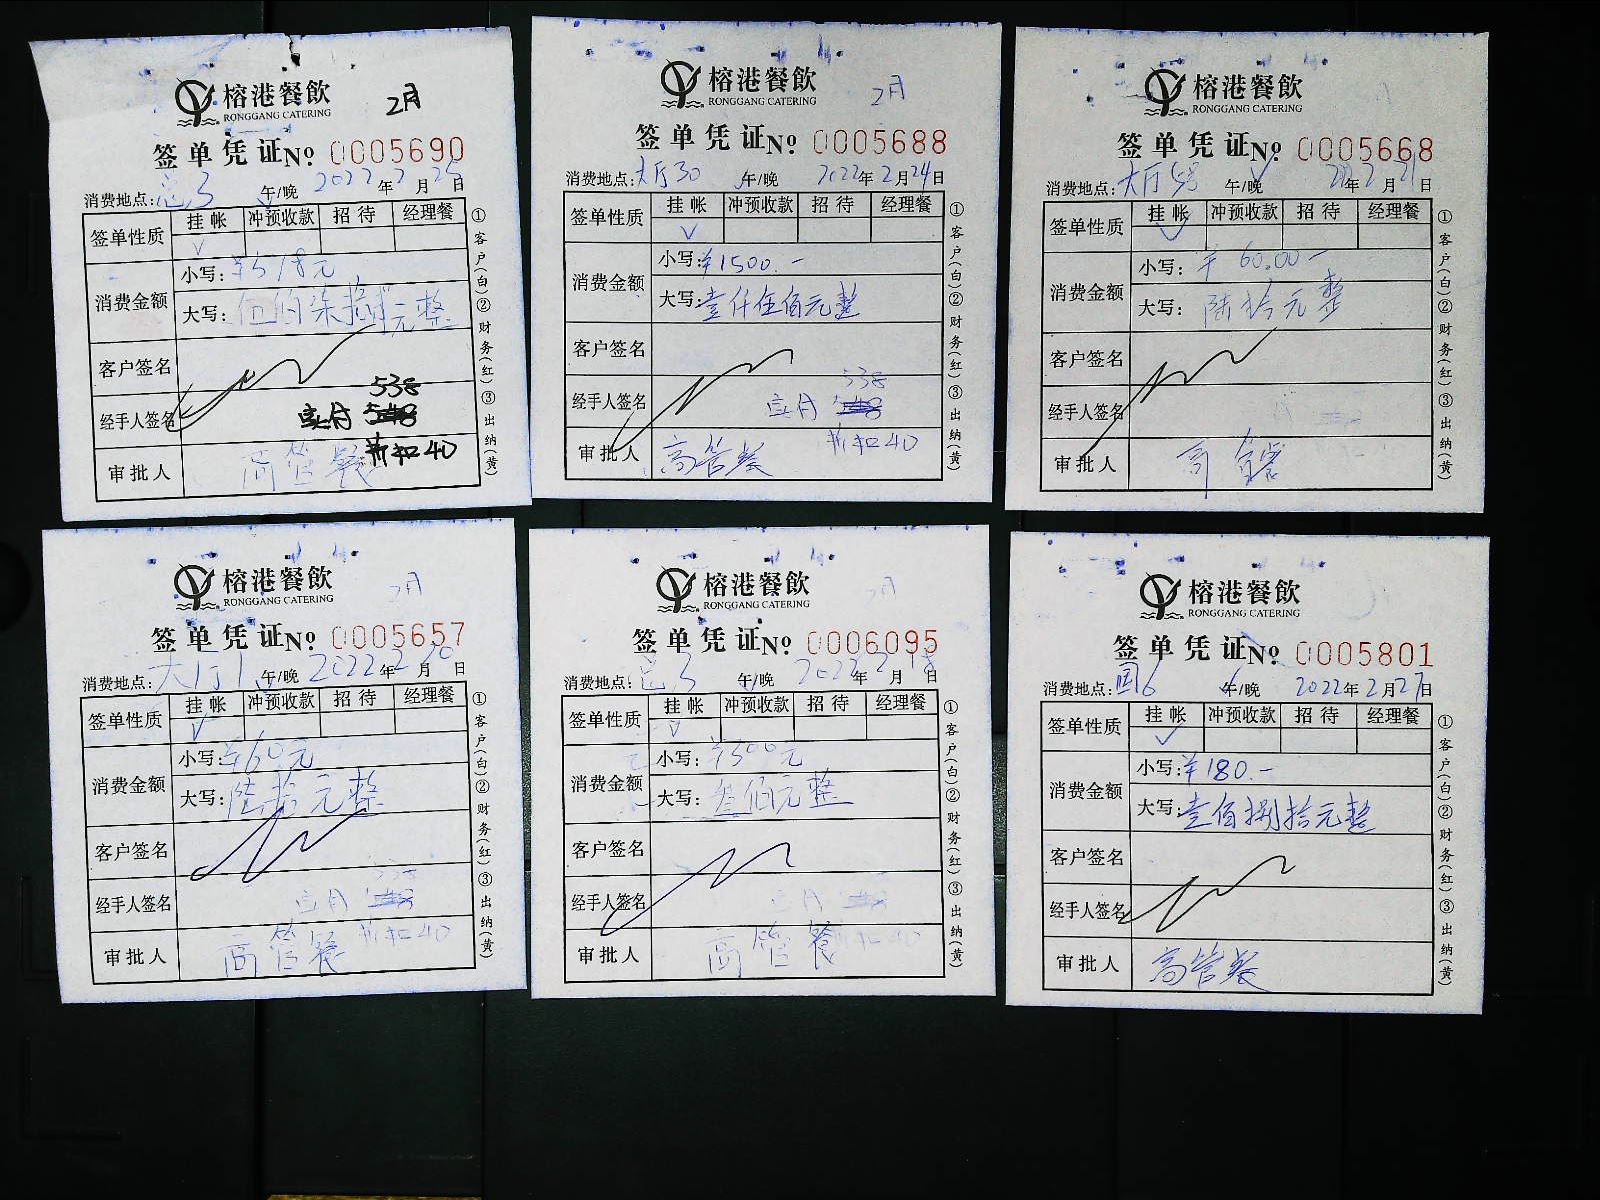 榕港餐飲
RONGGANG CATERING
2月
签单凭证 № 0005690
消费地点: 午/晚 2022年2月25日
签单性质 挂帐 冲预收款 招待 经理餐
√
消费金额 小写:
大写:
客户签名
经手人签名 538
审批人 高管餐 折扣40
①客户(白)②财务(红)③出纳(黄)
榕港餐飲
RONGGANG CATERING
2月
签单凭证 № 0005688
消费地点:大厅30 午/晚 2022年2月24日
签单性质 挂帐 冲预收款 招待 经理餐
√
消费金额 小写:¥1500.-
大写:壹仟伍佰元整
客户签名
经手人签名 538
审批人 高管餐 折扣40
①客户(白)②财务(红)③出纳(黄)
榕港餐飲
RONGGANG CATERING
签单凭证 № 0005668
消费地点:大厅 午/晚 年2月21日
签单性质 挂帐 冲预收款 招待 经理餐
√
消费金额 小写:¥60.00-
大写:陆拾元整
客户签名
经手人签名
审批人
①客户(白)②财务(红)③出纳(黄)
榕港餐飲
RONGGANG CATERING
2月
签单凭证 № 0005657
消费地点:大厅1 午/晚 2022年2月20日
签单性质 挂帐 冲预收款 招待 经理餐
√
消费金额 小写:¥60元
大写:陆拾元整
客户签名
经手人签名
审批人 高管餐 折扣40
①客户(白)②财务(红)③出纳(黄)
榕港餐飲
RONGGANG CATERING
2月
签单凭证 № 0006095
消费地点: 午/晚 2022年2月 日
签单性质 挂帐 冲预收款 招待 经理餐
√
消费金额 小写:¥300元
大写:叁佰元整
客户签名
经手人签名
审批人 高管餐 折扣40
①客户(白)②财务(红)③出纳(黄)
榕港餐飲
RONGGANG CATERING
签单凭证 № 0005801
消费地点:国6 午/晚 2022年2月27日
签单性质 挂帐 冲预收款 招待 经理餐
√
消费金额 小写:¥180.-
大写:壹佰捌拾元整
客户签名
经手人签名
审批人 高管餐
①客户(白)②财务(红)③出纳(黄)